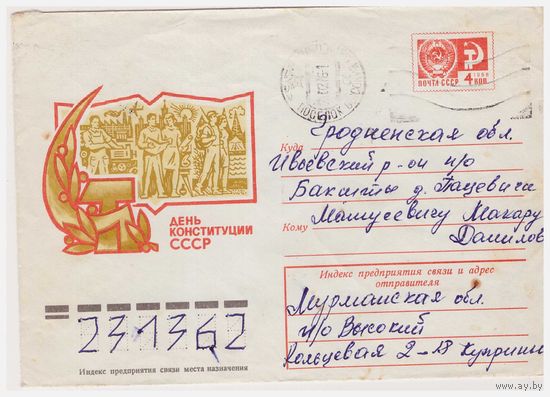 ПОЧТА СССР
1966
4 КОП.
Куда Гродненская обл.
Ивьевский р-он п/о
Бакшты д. Пацевичи
Матусевичу Макару
Кому Данилов
ДЕНЬ
КОНСТИТУЦИИ
СССР
Индекс предприятия связи и адрес
отправителя
Мурманская обл.
п/о Высокий
Кольцевая 2-18 Куприны
231362
Индекс предприятия связи места назначения
www.ay.by